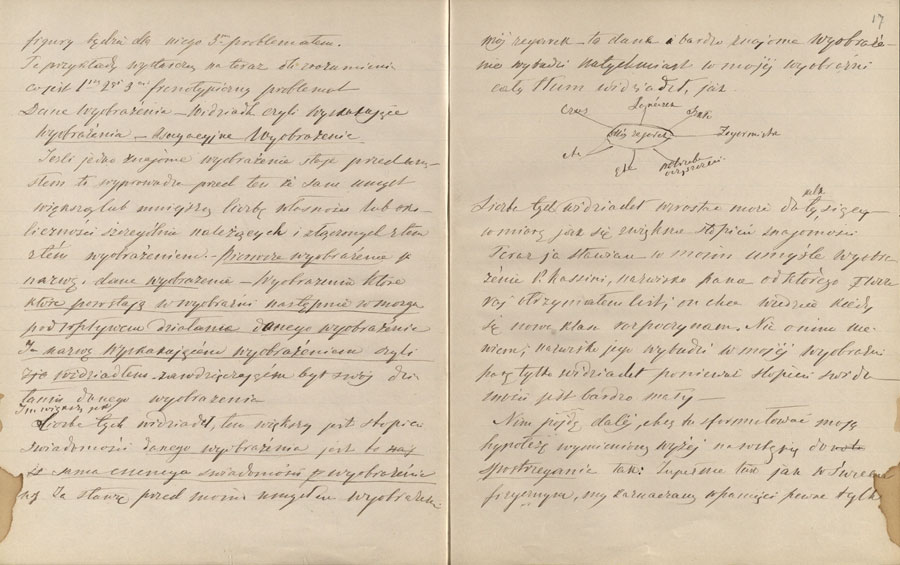 figury będzie dla niego 3m problematem.
Te przykłady wystarczą na teraz dla zrozumienia
co jest 1szy 2gi 3ci frenotypiczny problemat
Dane wyobrażenia – Widziadła czyli Wyskakujące
Wyobrażenia – Wyobrażenie
Jeśli jedno znajome wyobrażenie staje przed umy-
słem to wyprowadza przed ten że sam umysł
większą lub mniejszą liczbę własności lub oko-
liczności szczególnie należących i złączonych z tem
z tém wyobrażeniem. – Pierwsze wyobrażenie ja
nazwę, dane wyobrażenie – Wyobrażenia które
które powstają w wyobraźni następnie w mózgu
pod wpływem działania danego wyobrażenia
Ja nazwę Wyskakującém wyobrażeniem czyli
widziadłem zawdzięczającém byt swój dzia-
łaniu danego wyobrażenia
Im większa jest
liczba tych widziadeł, tem większy jest stopień
świadomości danego wyobrażenia jest to
summa świadomości wyobrażenia
Ja stawię przed moim umysłem wyobrażenie
17
mój zegarek – to dane i bardzo znajome wyobraże-
nie wybudzi natychmiast w mojéj wyobraźni
cały tłum widziadeł, jak
Czas
Mój zegarek
Zegarmistrz
potrzeba
oczyszczenia
Liczba tych widziadeł wzrosnąć może do tysięcy
w miarę jak się zwiększa stopień znajomości
Teraz ja stawiam w moim umyśle wyobra-
żenie P. Kassini, nazwisko pana od którego
otrzymałem list, on chce wiedzieć kiedy
się nowa klasa rozpoczyna. Nic o nim nie
wiem; nazwisko jego wybudzi w mojéj wyobraźni
parę tylko widziadeł ponieważ stopień świado-
mości jest bardzo mały –
Nim pójdę daléj, chcę tu sformułować moją
hypotezę wymienioną wyżéj
spostrzeganie tak: Zupełnie tak jak w świecie
fizycznym, my zaznaczamy w pamięci pewne tylko